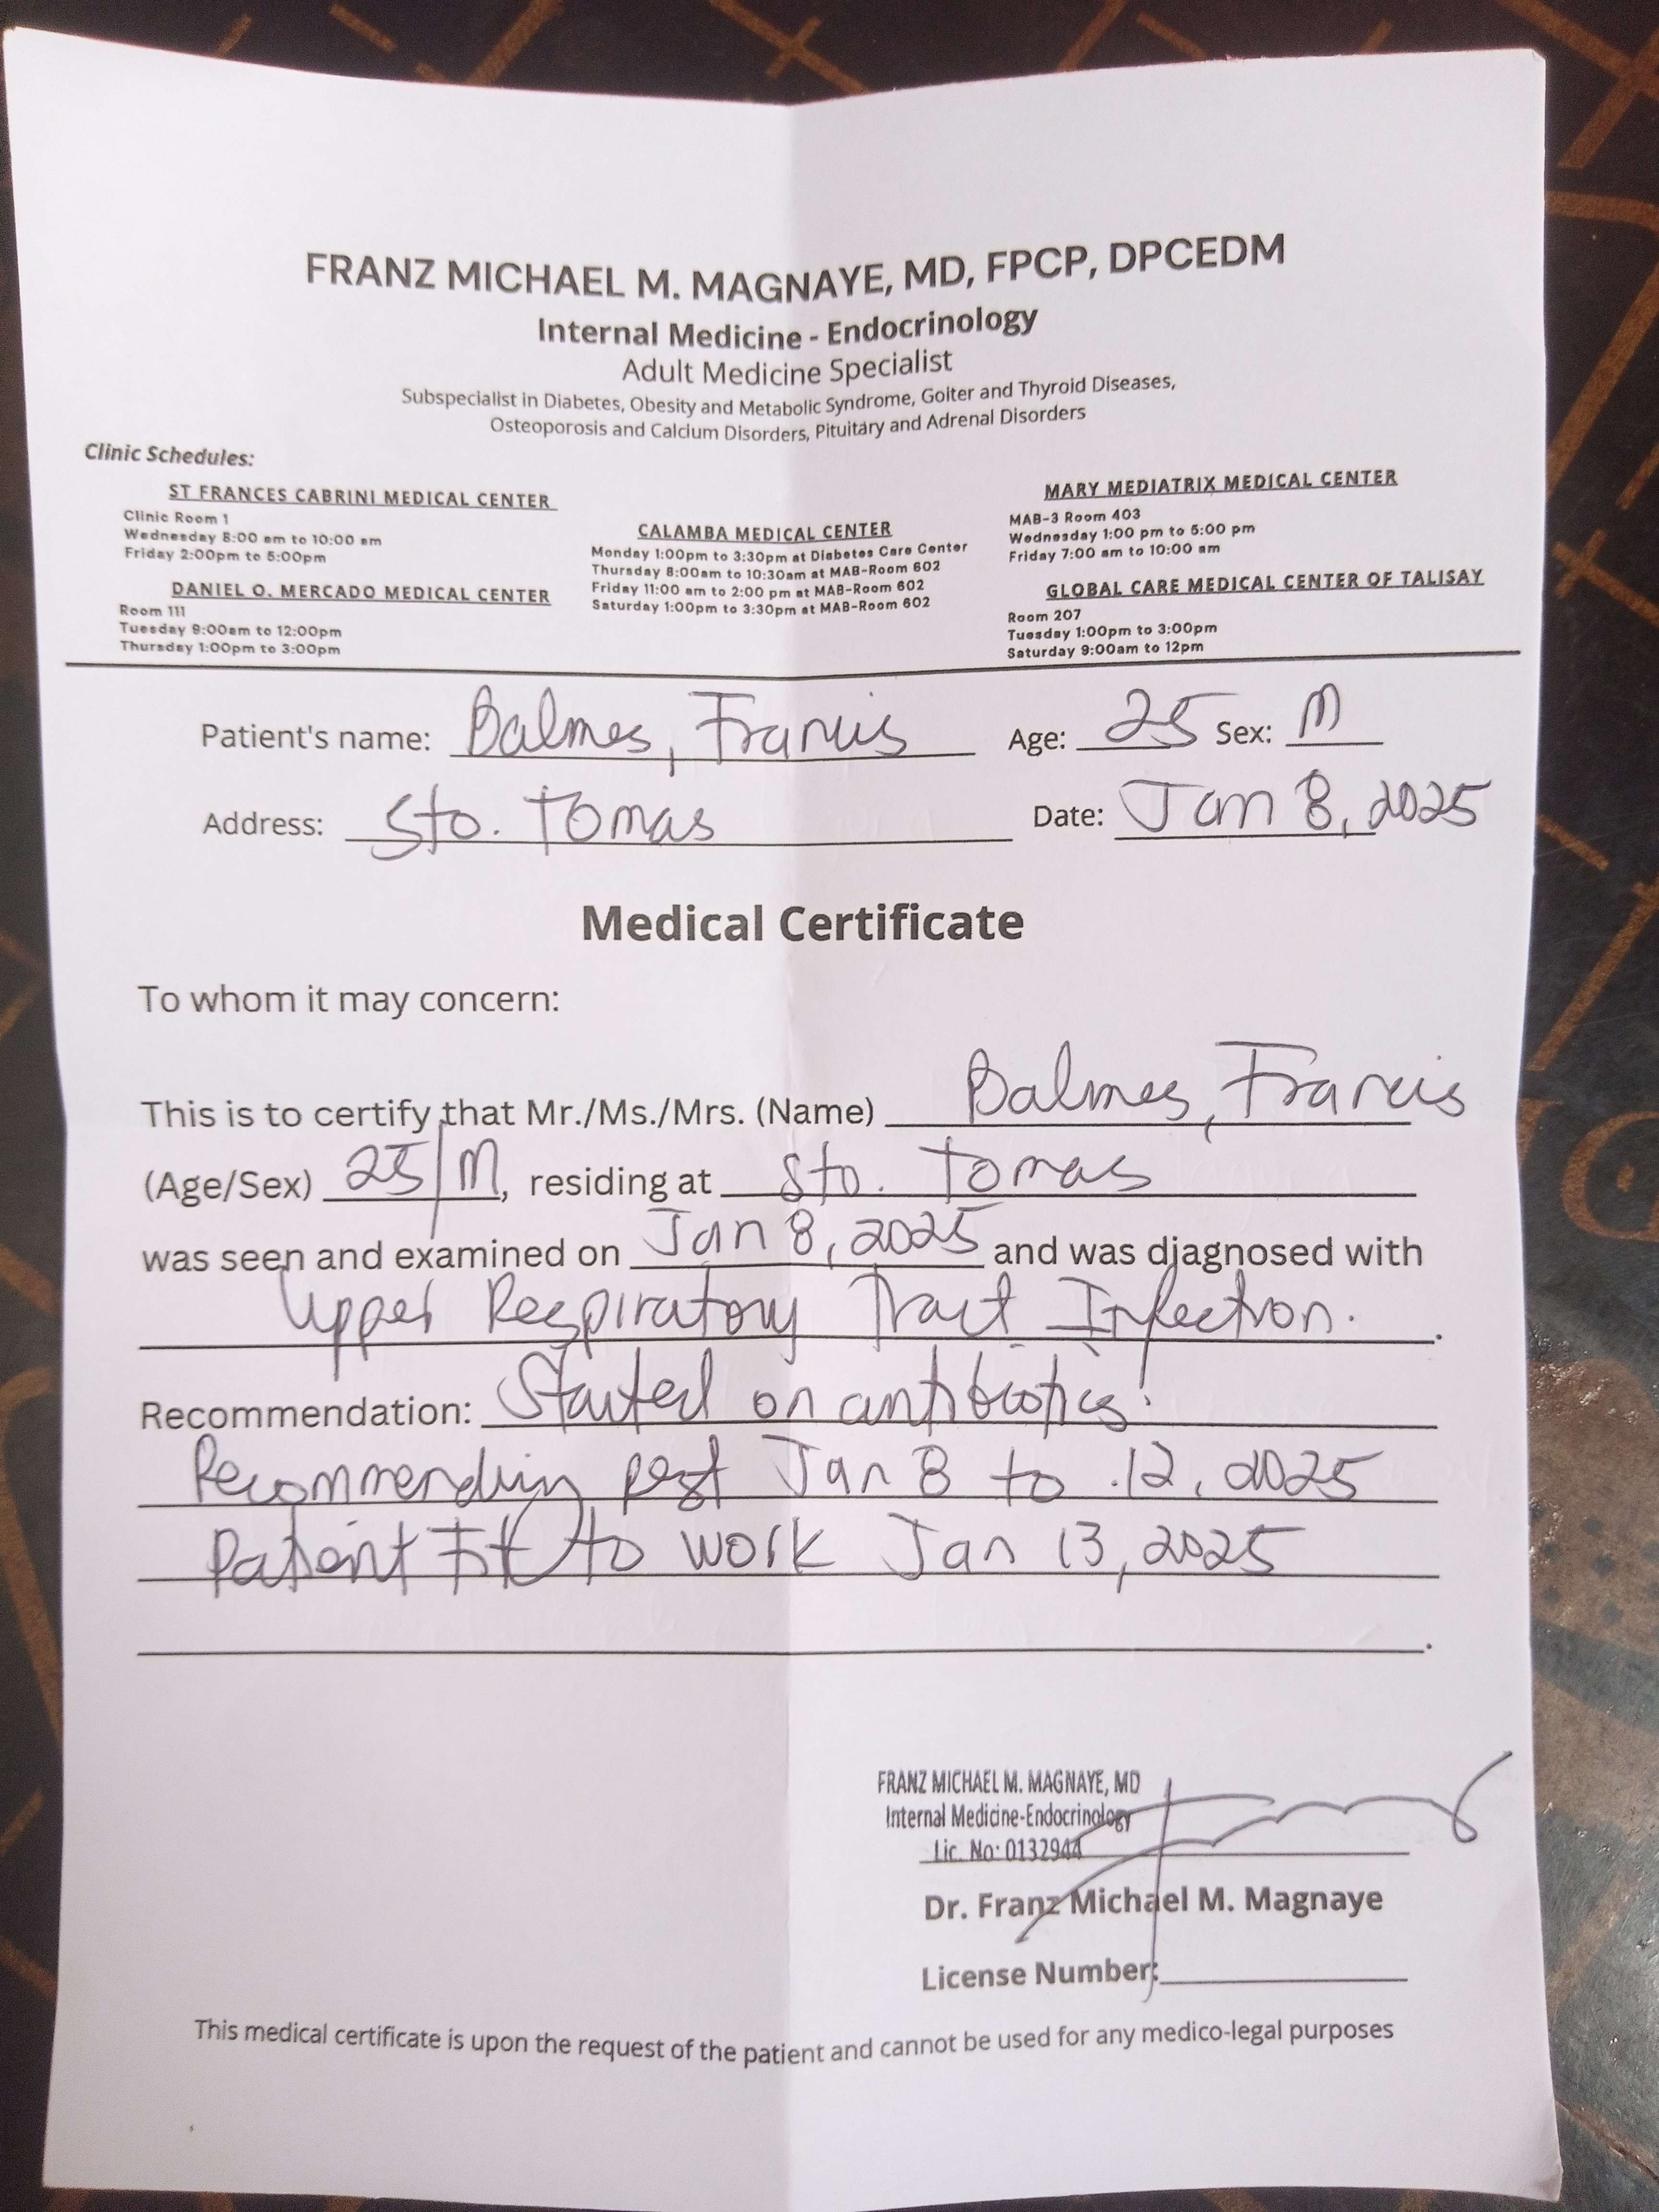 FRANZ MICHAEL M. MAGNAYE, MD, FPCP, DPCEDM
Internal Medicine - Endocrinology
Adult Medicine Specialist
Subspecialist in Diabetes, Obesity and Metabolic Syndrome, Goiter and Thyroid Diseases,
Osteoporosis and Calcium Disorders, Pituitary and Adrenal Disorders
Clinic Schedules:
ST FRANCES CABRINI MEDICAL CENTER
Clinic Room 1
Wednesday 8:00 am to 10:00 am
Friday 2:00pm to 5:00pm
DANIEL O. MERCADO MEDICAL CENTER
Room 111
Tuesday 9:00am to 12:00pm
Thursday 1:00pm to 3:00pm
CALAMBA MEDICAL CENTER
Monday 1:00pm to 3:30pm at Diabetes Care Center
Thursday 8:00am to 10:30am at MAB-Room 602
Friday 11:00 am to 2:00 pm at MAB-Room 602
Saturday 1:00pm to 3:30pm at MAB-Room 602
MARY MEDIATRIX MEDICAL CENTER
MAB-3 Room 403
Wednesday 1:00 pm to 5:00 pm
Friday 7:00 am to 10:00 am
GLOBAL CARE MEDICAL CENTER OF TALISAY
Room 207
Tuesday 1:00pm to 3:00pm
Saturday 9:00am to 12pm
Patient's name: Balmes, Francis Age: 25 Sex: M
Address: Sto. Tomas Date: Jan 8, 2025
Medical Certificate
To whom it may concern:
This is to certify that Mr./Ms./Mrs. (Name) Balmes, Francis
(Age/Sex) 25/M, residing at Sto. Tomas
was seen and examined on Jan 8, 2025 and was diagnosed with
Upper Respiratory Tract Infection.
Recommendation: Started on antibiotics!
Recommending rest Jan 8 to 12, 2025
Patient Fit to work Jan 13, 2025
FRANZ MICHAEL M. MAGNAYE, MD
Internal Medicine-Endocrinology
Lic. No: 0132944
Dr. Franz Michael M. Magnaye
License Number:
This medical certificate is upon the request of the patient and cannot be used for any medico-legal purposes